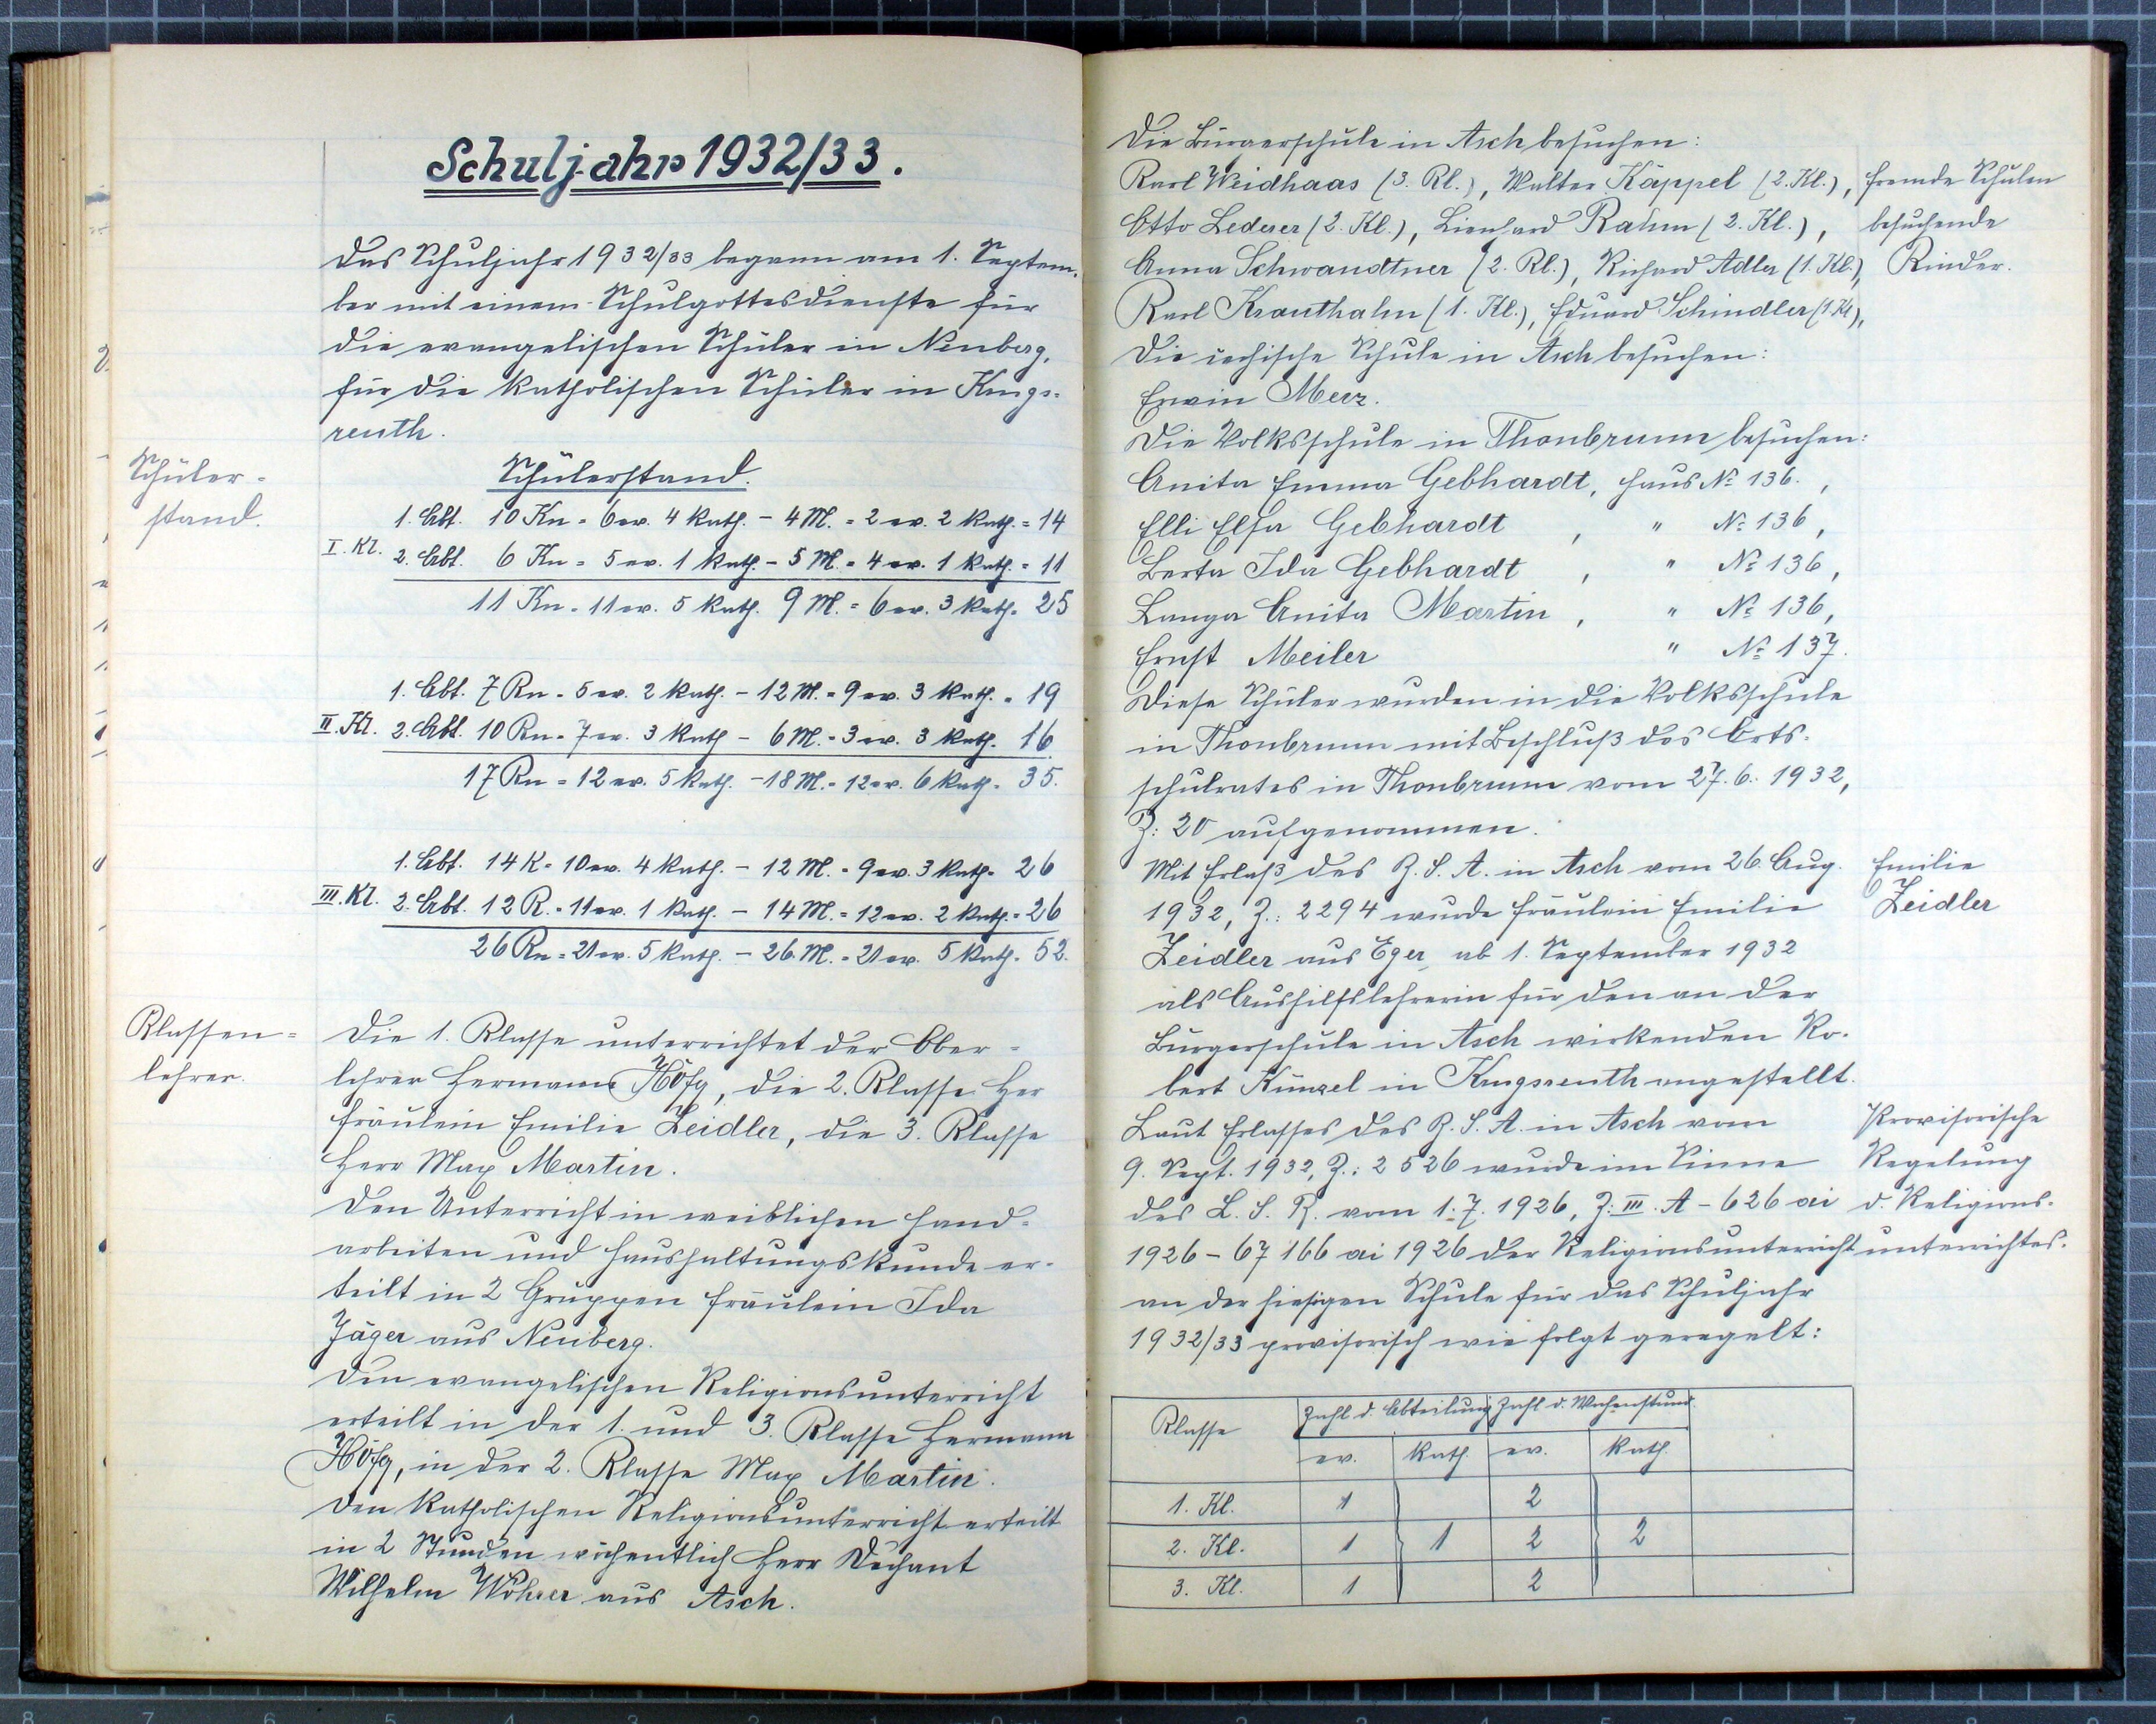 Schuljahr 1932/33.
Das Schuljahr 1932/33 begann am 1. Septem-
ber mit einem Schulgottesdienste für
die evangelischen Schüler in Neuberg,
für die katholischen Schüler in Krugs-
reuth.
Schüler-
stand.
Schülerstand.
1. Abt. 10 Kn = 6 ev. 4 kath. - 4 M. = 2 ev. 2 kath. = 14
I. Kl. 2. Abt. 6 Kn = 5 ev. 1 kath. - 5 M. = 4 ev. 1 kath. = 11
11 Kn = 11 ev. 5 kath. 9 M. = 6 ev. 3 kath. = 25
1. Abt. 7 Kn = 5 ev. 2 kath. - 12 M. = 9 ev. 3 kath. = 19
II. Kl. 2. Abt. 10 Kn = 7 ev. 3 kath - 6 M. = 3 ev. 3 kath. 16
17 Kn = 12 ev. 5 kath. - 18 M. = 12 ev. 6 kath. = 35.
1. Abt. 14 K = 10 ev. 4 kath. - 12 M. = 9 ev. 3 kath = 26
III. Kl. 2. Abt. 12 K. = 11 ev. 1 kath. - 14 M. = 12 ev. 2 kath. = 26
26 Kn = 21 ev. 5 kath. - 26 M. = 21 ev. 5 kath. = 52.
Klassen-
lehrer.
Die 1. Klasse unterrichtet der Ober-
lehrer Hermann Höfg, die 2. Klasse Her
Fräulein Emilie Zeidler, die 3. Klasse
Herr Max Martin.
Den Unterricht in weiblichen Hand-
arbeiten und Haushaltungskunde er-
teilt in 2 Gruppen Fräulein Ida
Jäger aus Neuberg.
Den evangelischen Religionsunterricht
erteilt in der 1. und 3. Klasse Hermann
Höfg, in der 2. Klasse Max Martin.
Den katholischen Religionsunterricht erteilt
in 2 Stunden wöchentlich Herr Dechant
Wilhelm Wöhrer aus Asch.
Die Bürgerschule in Asch besuchen:
Karl Weidhaas (3. Kl.), Walter Käppel (2. Kl.),
Otto Lederer (2. Kl.), Lienhard Rahm (2. Kl.),
Anna Schwandtner (2. Kl.), Richard Adler (1. Kl.),
Karl Krauthahn (1. Kl.), Eduard Schindler (1 Kl),
Fremde Schulen
besuchende
Kinder.
Die čechische Schule in Asch besuchen:
Erwin Merz.
Die Volksschule in Thonbrunn besuchen:
Anita Emma Gebhardt, Haus No 136.,
Elli Elsa Gebhardt, " No 136,
Berta Ida Gebhardt, " No 136,
Langa Anita Martin, " No 136,
Ernst Meiler " No 137.
Diese Schüler wurden in die Volksschule
in Thonbrunn mit Beschluß des Orts-
schulrates in Thonbrunn vom 27. 6. 1932,
Z: 20 aufgenommen.
Mit Erlaß des B. S. A. in Asch vom 26. Aug.
1932, Z.: 2294 wurde Fräulein Emilie
Zeidler aus Eger ab 1. September 1932
als Aushilfslehrerin für den an der
Bürgerschule in Asch wirkenden Ro-
bert Künzel in Krugsreuth angestellt.
Emilie
Zeidler
Laut Erlasses des B. S. A. in Asch vom
9. Sept. 1932, Z.: 2526 wurde im Sinne
des L. S. R. vom 1. 7. 1926, Z: III. A - 626 ai
1926 - 67 166 ai 1926 der Religionsunterricht
an der hiesigen Schule für das Schuljahr
1932/33 provisorisch wie folgt geregelt:
Provisorische
Regelung
d. Religions-
unterrichtes.
Klasse Zahl d. Abteilung Zahl d. Wochenstund.
ev. kath. ev. kath.
1. Kl. 1 2
2. Kl. 1 1 2 2
3. Kl. 1 2